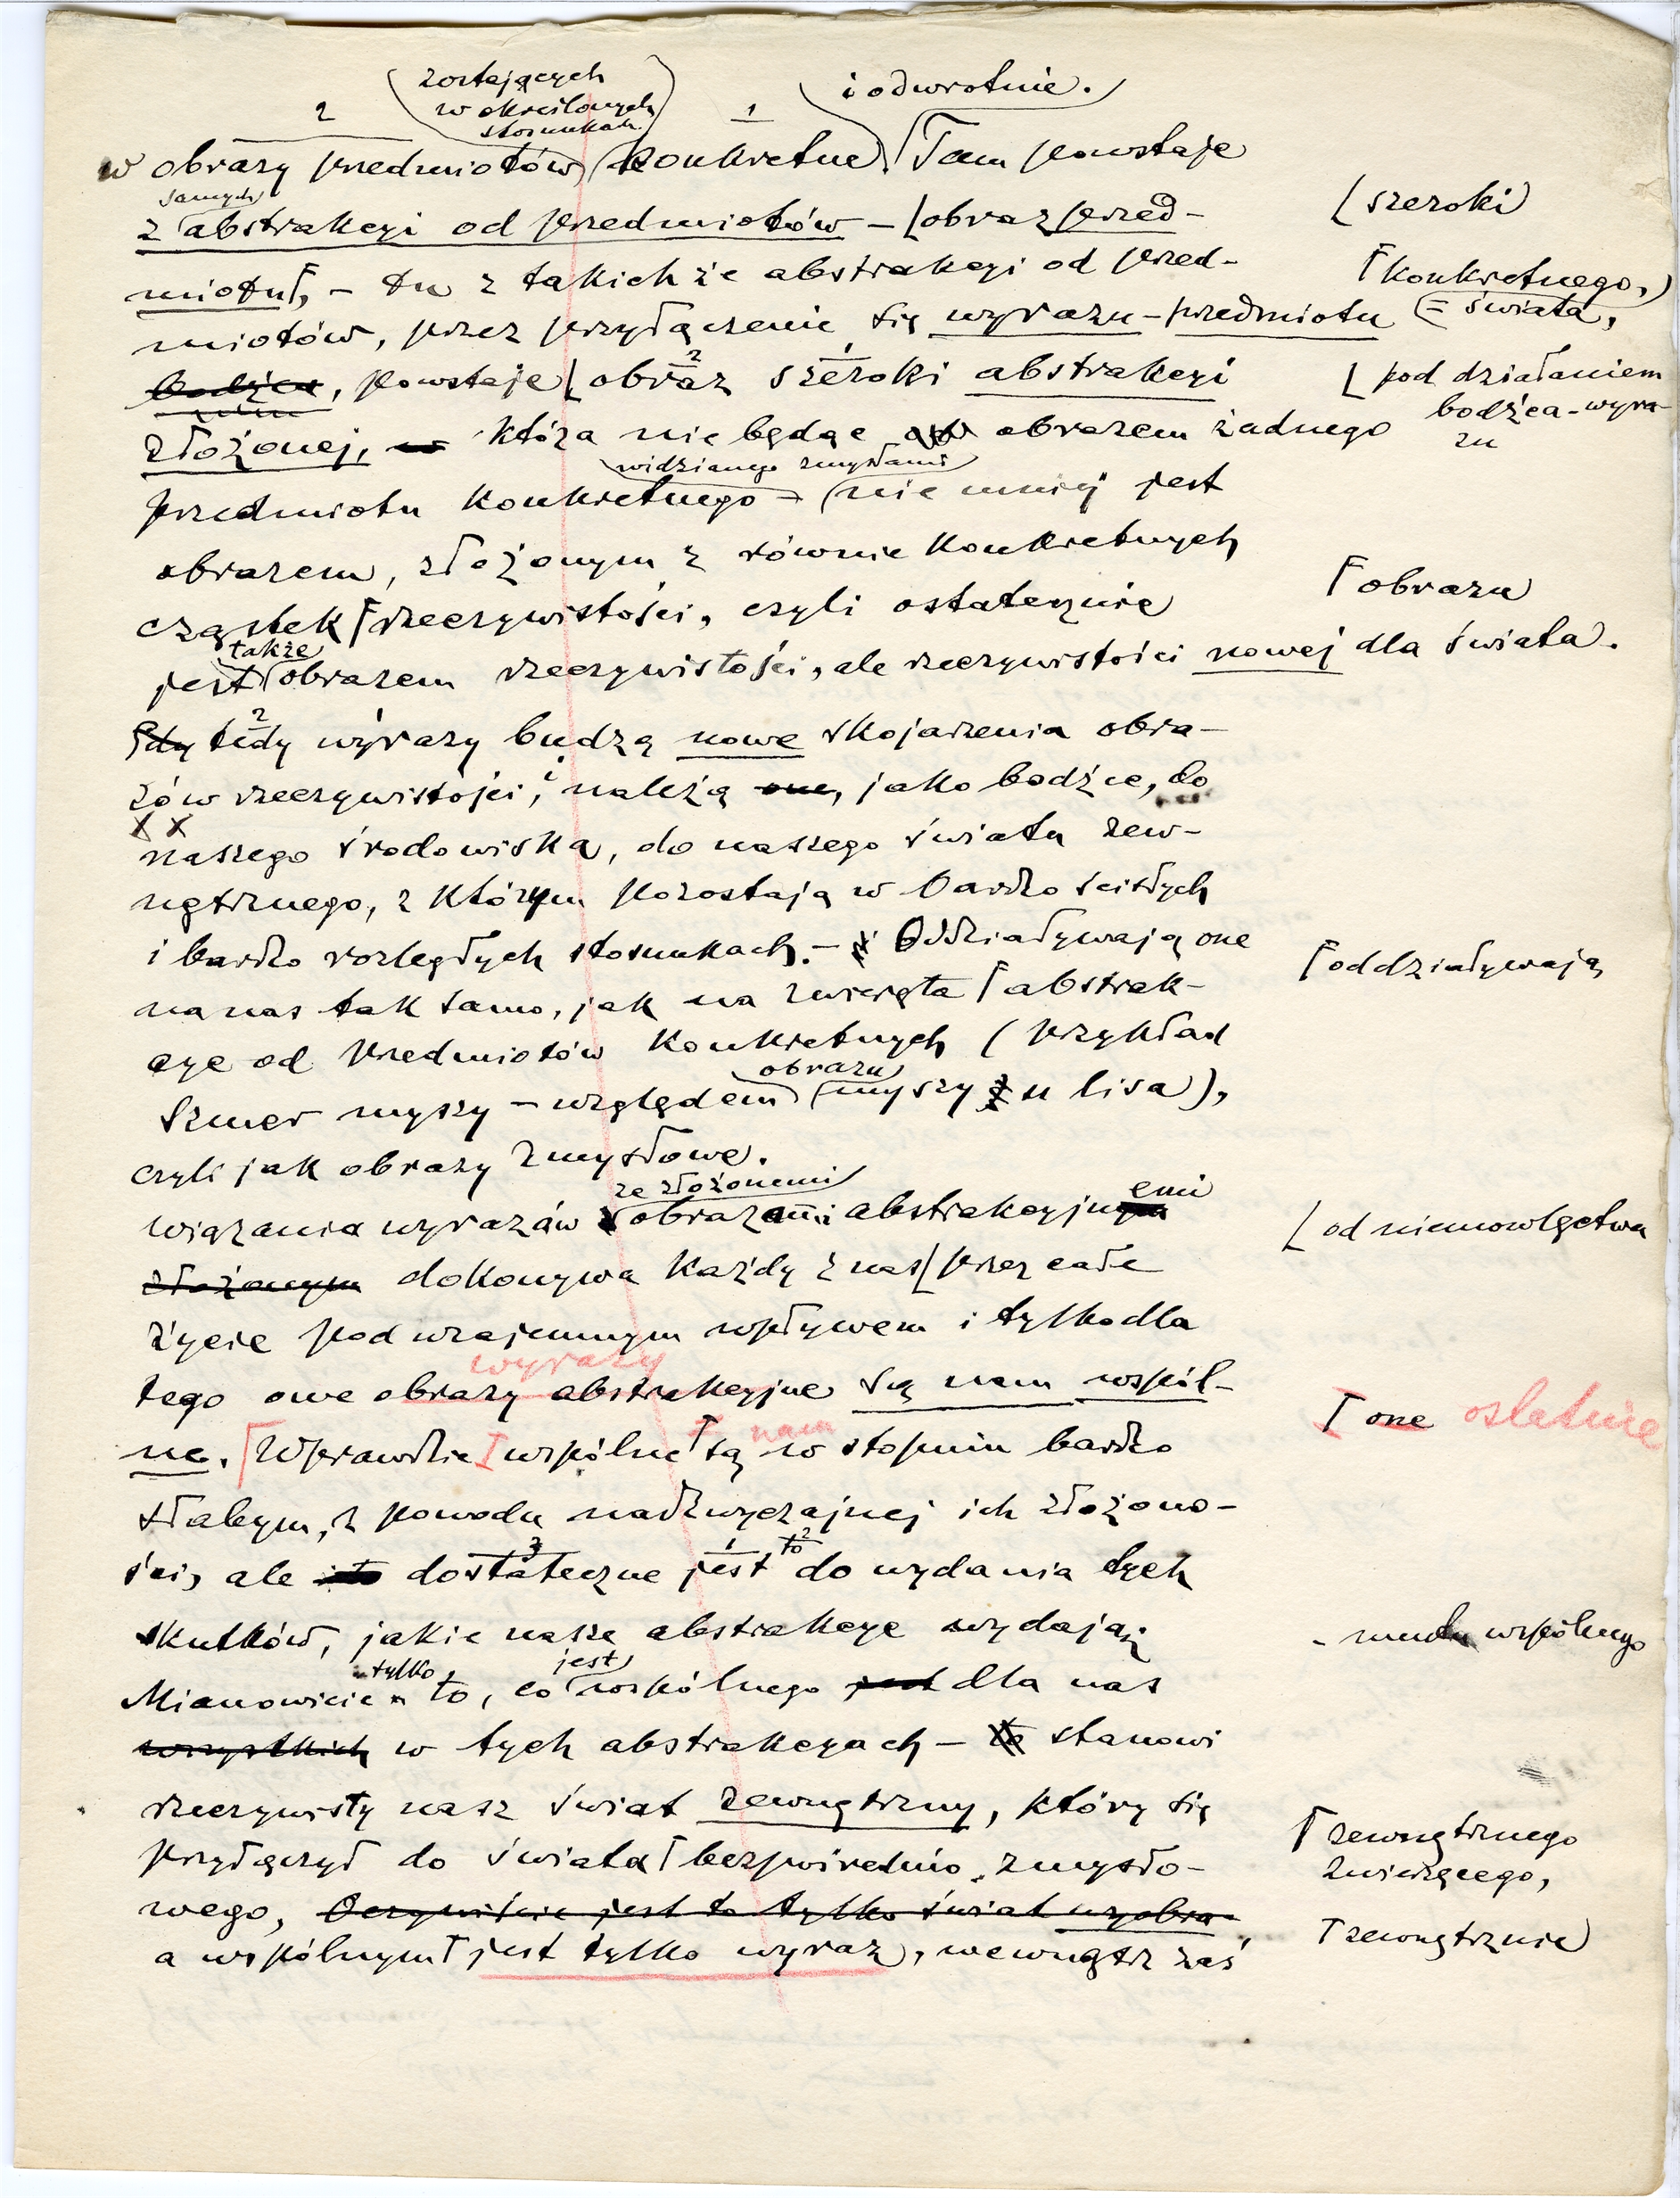 zostających
w określonych
stosunkach.
i odwrotnie.
2
1
w obrazy przedmiotów konkretne. Tam powstaje
samych
z abstrakcyi od przedmiotów – obraz przed-
szeroki
miotu, – tu z takichże abstrakcyi od przed-
konkretnego,
miotów, przez przyłączenie się wyrazu-przedmiotu
= świata,
bodźca, powstaje obraz szeroki abstrakcyi
2
1
pod działaniem
bodźca-wyra-
zu
złożonej, która nie będąc obrazem żadnego
widzianego zmysłami
przedmiotu konkretnego – nie mniej jest
obrazem, złożonym z równie konkretnych
obrazu
cząstek rzeczywistości, czyli ostatecznie
także
jest obrazem rzeczywistości, ale rzeczywistości nowej dla świata.
2
1
Gdy tedy wyrazy budzą nowe skojarzenia obra-
zów rzeczywistości, i należą one, jako bodźce, do
x x
naszego środowiska, do naszego świata zew-
nętrznego, z którym pozostają w bardzo ścisłych
i bardzo rozległych stosunkach. – Oddziaływają one
oddziaływają
na nas tak samo, jak na zwierzęta abstrak-
cye od przedmiotów konkretnych (przykład
obrazu
szmer myszy – względem myszy u lisa),
czyli jak obrazy zmysłowe.
ze złożonemi
emi
Wiązania wyrazów obrazami abstrakcyjnym
od niemowlęctwa
złożonym dokonywa każdy z nas przez całe
życie pod wzajemnym wpływem i tylko dla
wyrazy
tego owe obrazy abstrakcyjne są nam wspól-
one ostatnie
nam
ne. Wprawdzie wspólne są w stopniu bardzo
słabym, z powodu nadzwyczajnej ich złożono-
3
1
2
to
ści, ale to dostateczne jest do wydania tych
skutków, jakie nasze abstrakcye wydają;
wspólnego
tylko
jest
Mianowicie to, co wspólnego jest dla nas
wszystkich w tych abstrakcyach – to stanowi
rzeczywisty nasz świat zewnętrzny, który się
zewnętrznego
zwierzęcego,
przyłączył do świata bezpośrednio zmysło-
wego, Oczywiście jest to tylko świat wyobra-
zewnętrznie
a wspólnym jest tylko wyraz, wewnątrz zaś